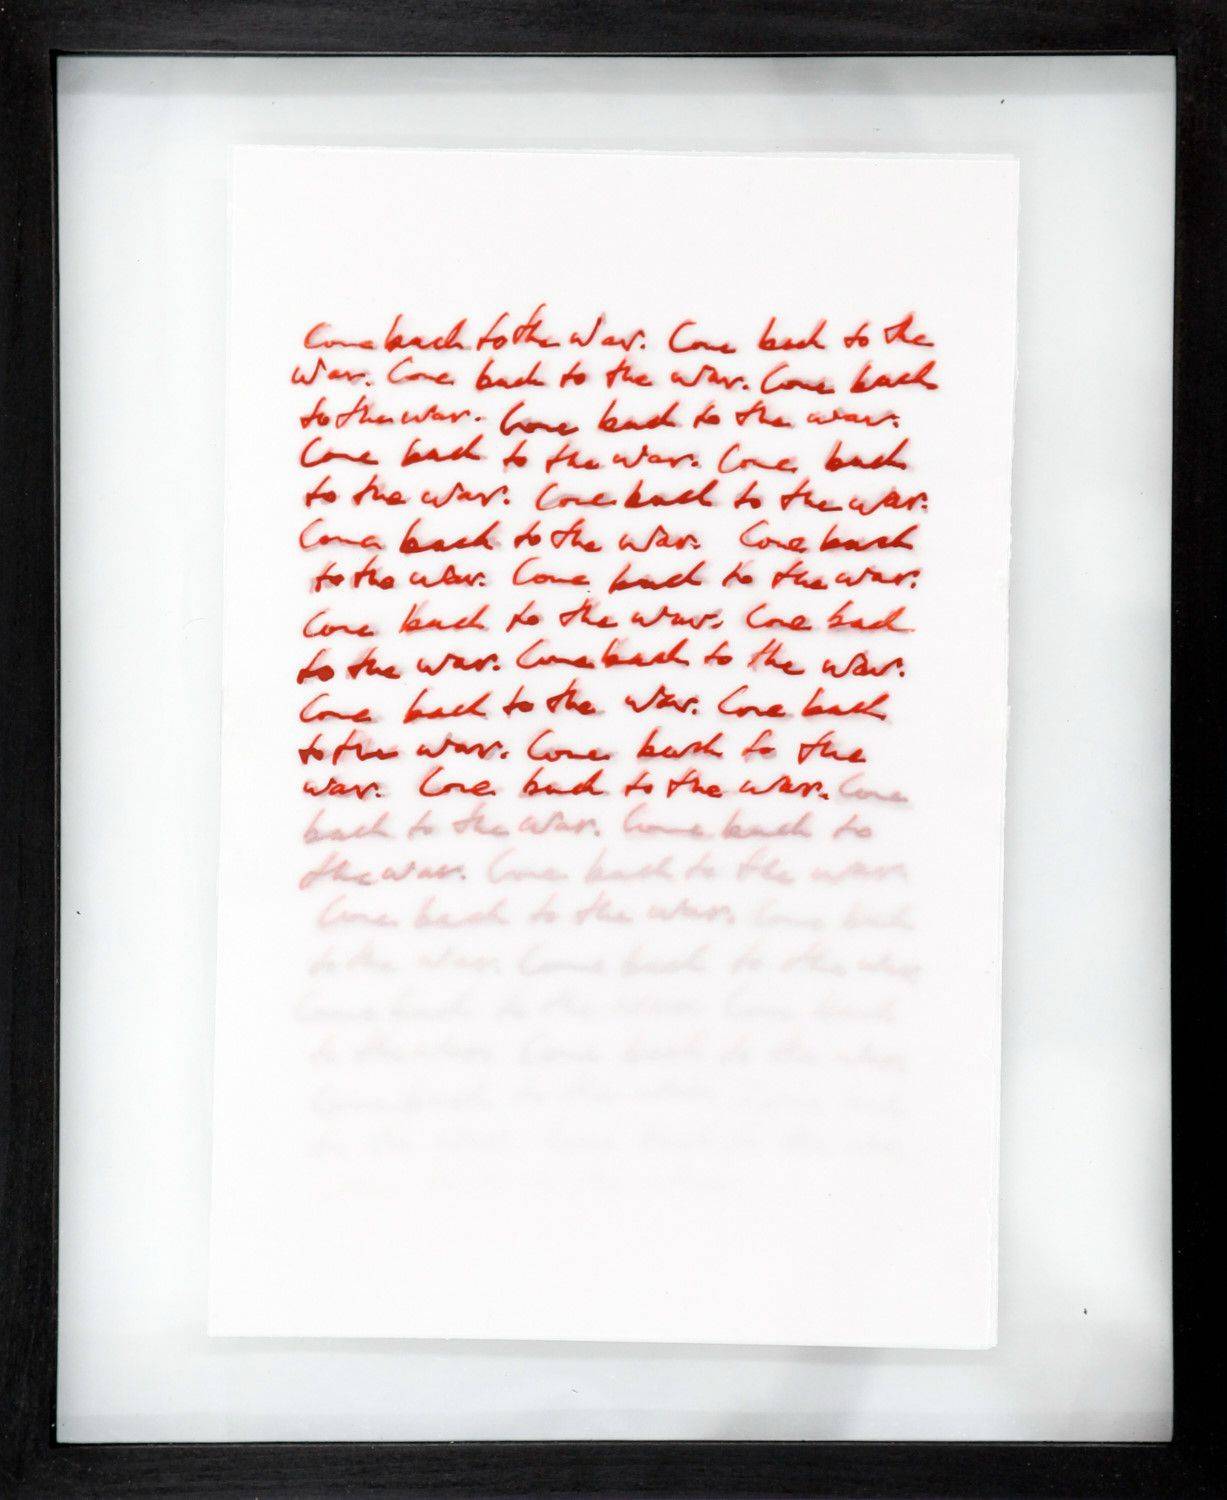 Come back to the war. Come back to the
war. Come back to the war. Come back
to the war. Come back to the war.
Come back to the war. Come back
to the war. Come back to the war.
Come back to the war. Come back
to the war. Come back to the war.
Come back to the war. Come back
to the war. Come back to the war.
Come back to the war. Come back
to the war. Come back to the
war. Come back to the war. Come
back to the war. Come back to
the war. Come back to the war.
Come back to the war. Come back
to the war. Come back to the war
Come back to the war Come back
to the war Come back to the war
Come back to the war